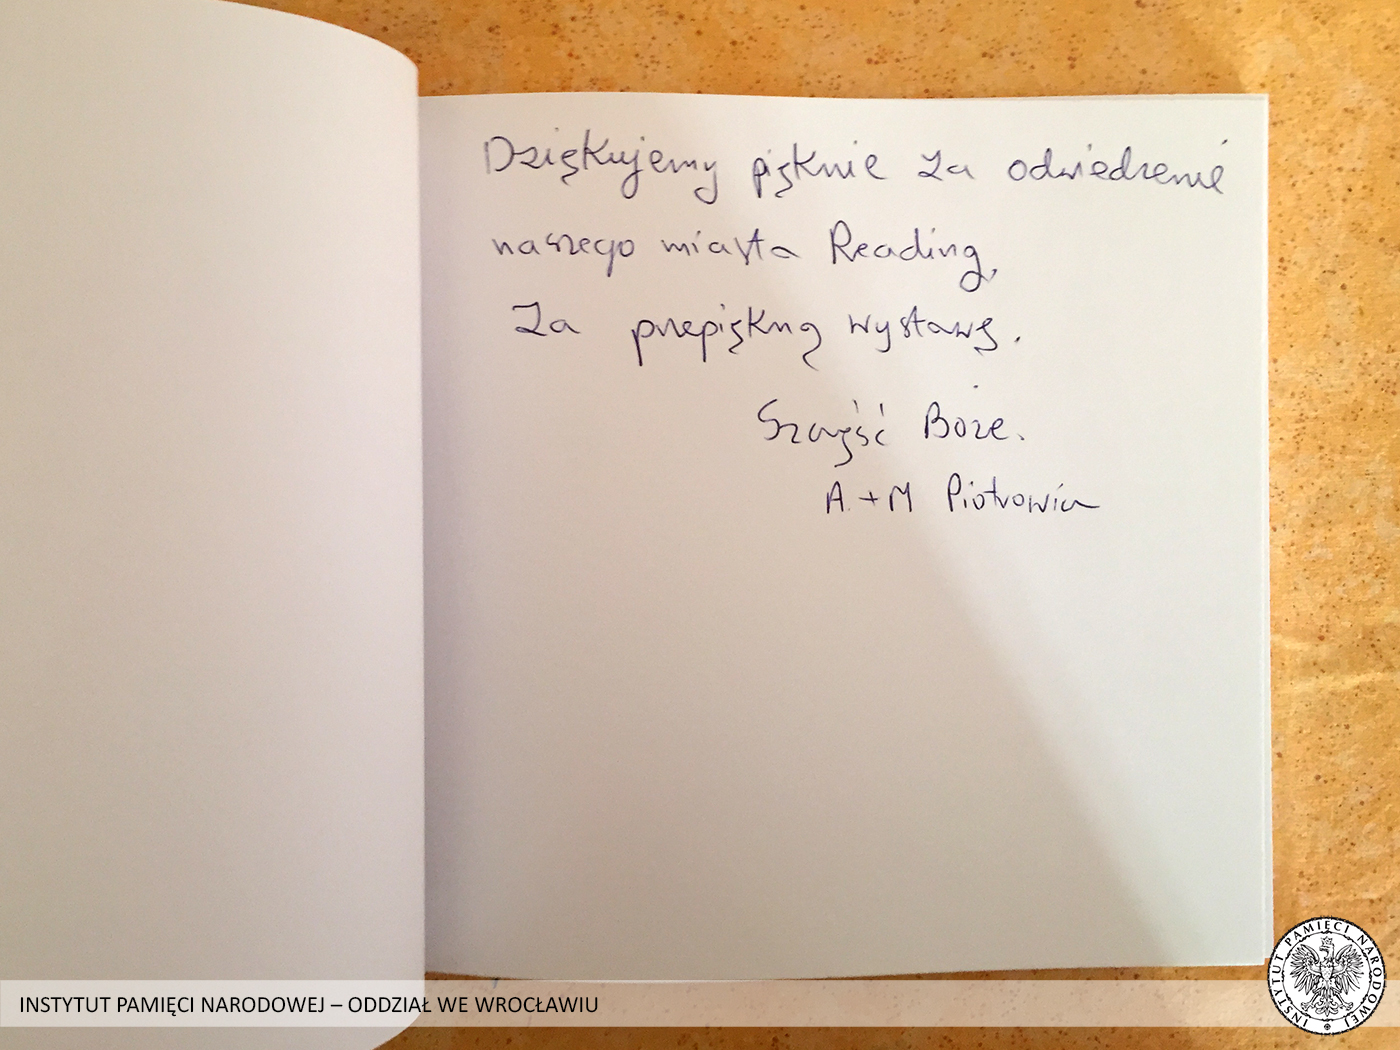 Dziękujemy pięknie za odwiedzenie
naszego miasta Reading,
Za przepiękną wystawę.
Szczęść Boże.
A. + M Piotrowia
INSTYTUT PAMIĘCI NARODOWEJ – ODDZIAŁ WE WROCŁAWIU
INSTYTUT PAMIĘCI NARODOWEJ